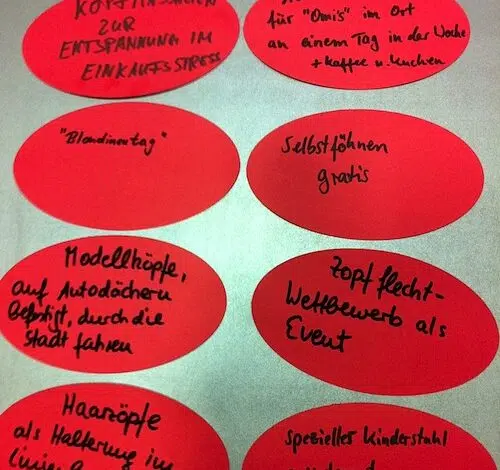 KOPFMASSAGEN
ZUR
ENTSPANNUNG IM
EINKAUFSSTRESS
für "Omis" im Ort
an einem Tag in der Woche
+ Kaffee u. Kuchen
"Blondinentag"
Selbstföhnen
gratis
Modellköpfe,
auf Autodächern
befestigt, durch die
Stadt fahren
Zopfflecht-
Wettbewerb als
Event
Haarzöpfe
als Halterung im
spezieller Kinderstuhl